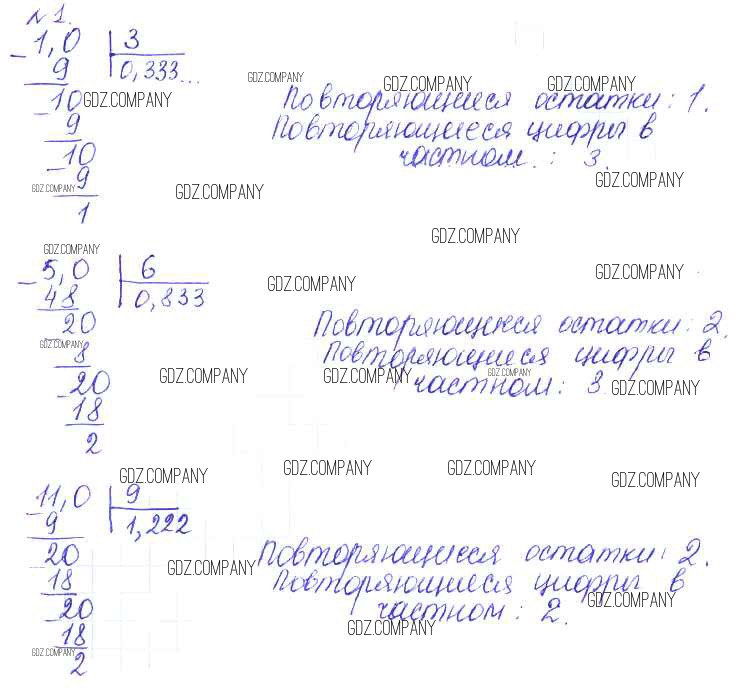 №1.
1,0 | 3
9 | 0,333...
10 GDZ.COMPANY GDZ.COMPANY GDZ.COMPANY GDZ.COMPANY
Повторяющиеся остатки: 1.
9
Повторяющиеся цифры в
10
частном: 3.
9
GDZ.COMPANY GDZ.COMPANY GDZ.COMPANY
1
GDZ.COMPANY
GDZ.COMPANY
5,0 | 6
GDZ.COMPANY GDZ.COMPANY
48 | 0,833
20
Повторяющиеся остатки: 2.
GDZ.COMPANY
8
Повторяющиеся цифры в
20 GDZ.COMPANY GDZ.COMPANY GDZ.COMPANY GDZ.COMPANY
частном: 3
18
2
GDZ.COMPANY GDZ.COMPANY GDZ.COMPANY GDZ.COMPANY
11,0 | 9
9 | 1,222
20
Повторяющиеся остатки: 2.
GDZ.COMPANY
18
Повторяющиеся цифры в
20
частном: 2.
GDZ.COMPANY
18
GDZ.COMPANY
GDZ.COMPANY
2